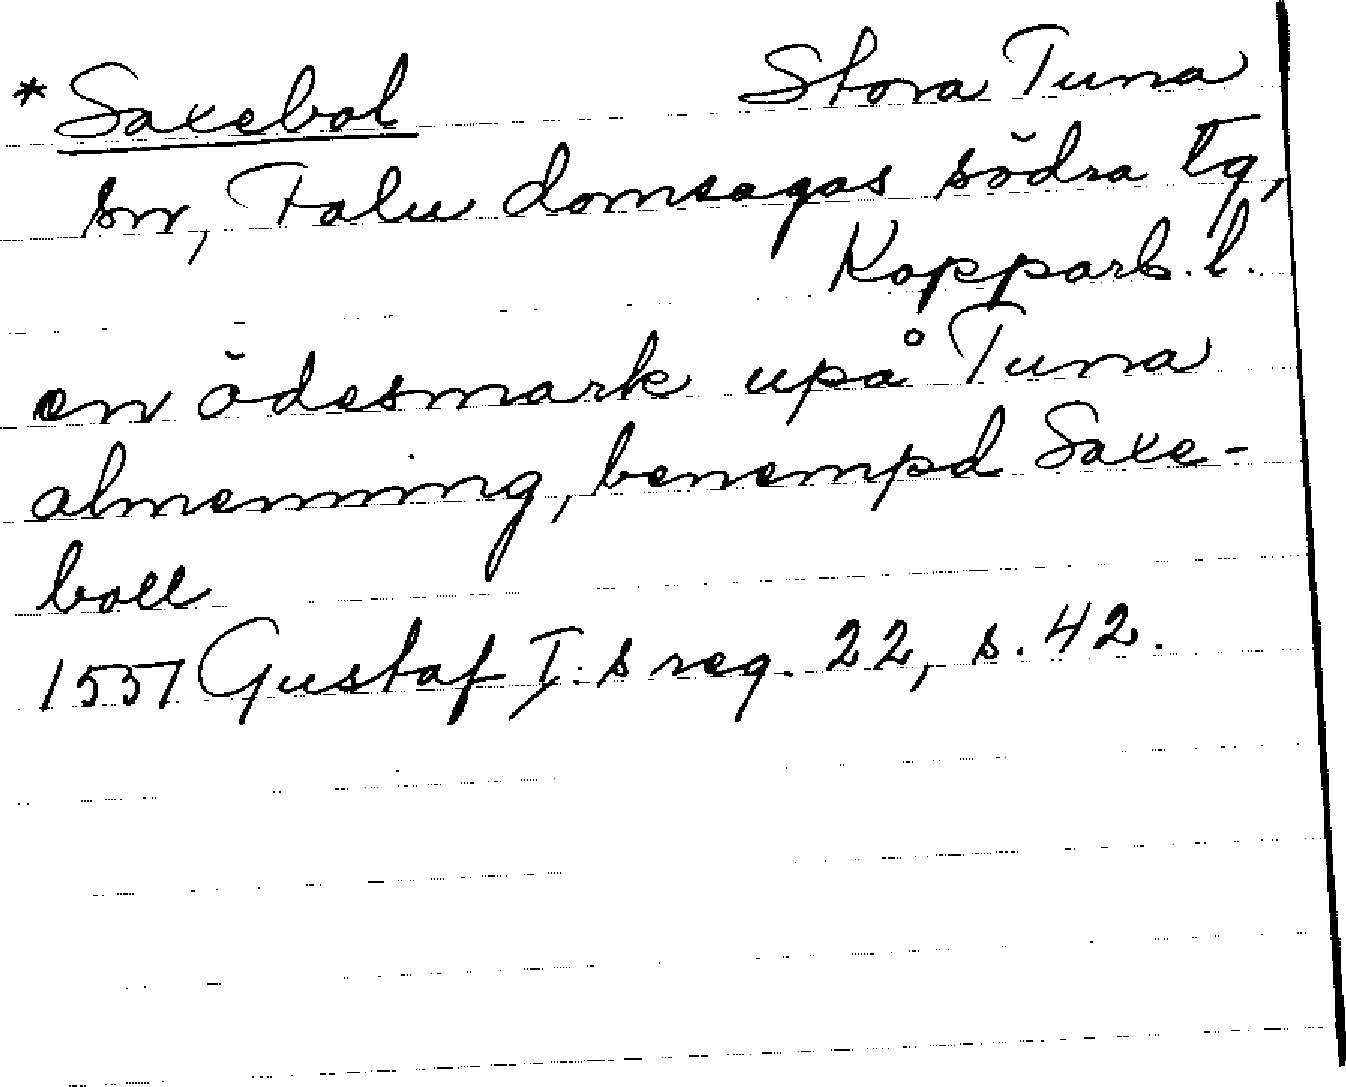 *Saxebol Stora Tuna
sn, Falu domsagas södra tg,
Kopparb. l.
en ödesmark upå Tuna
almenning, benempd Saxe-
boll
1557 Gustaf I:s reg. 22, s. 42.